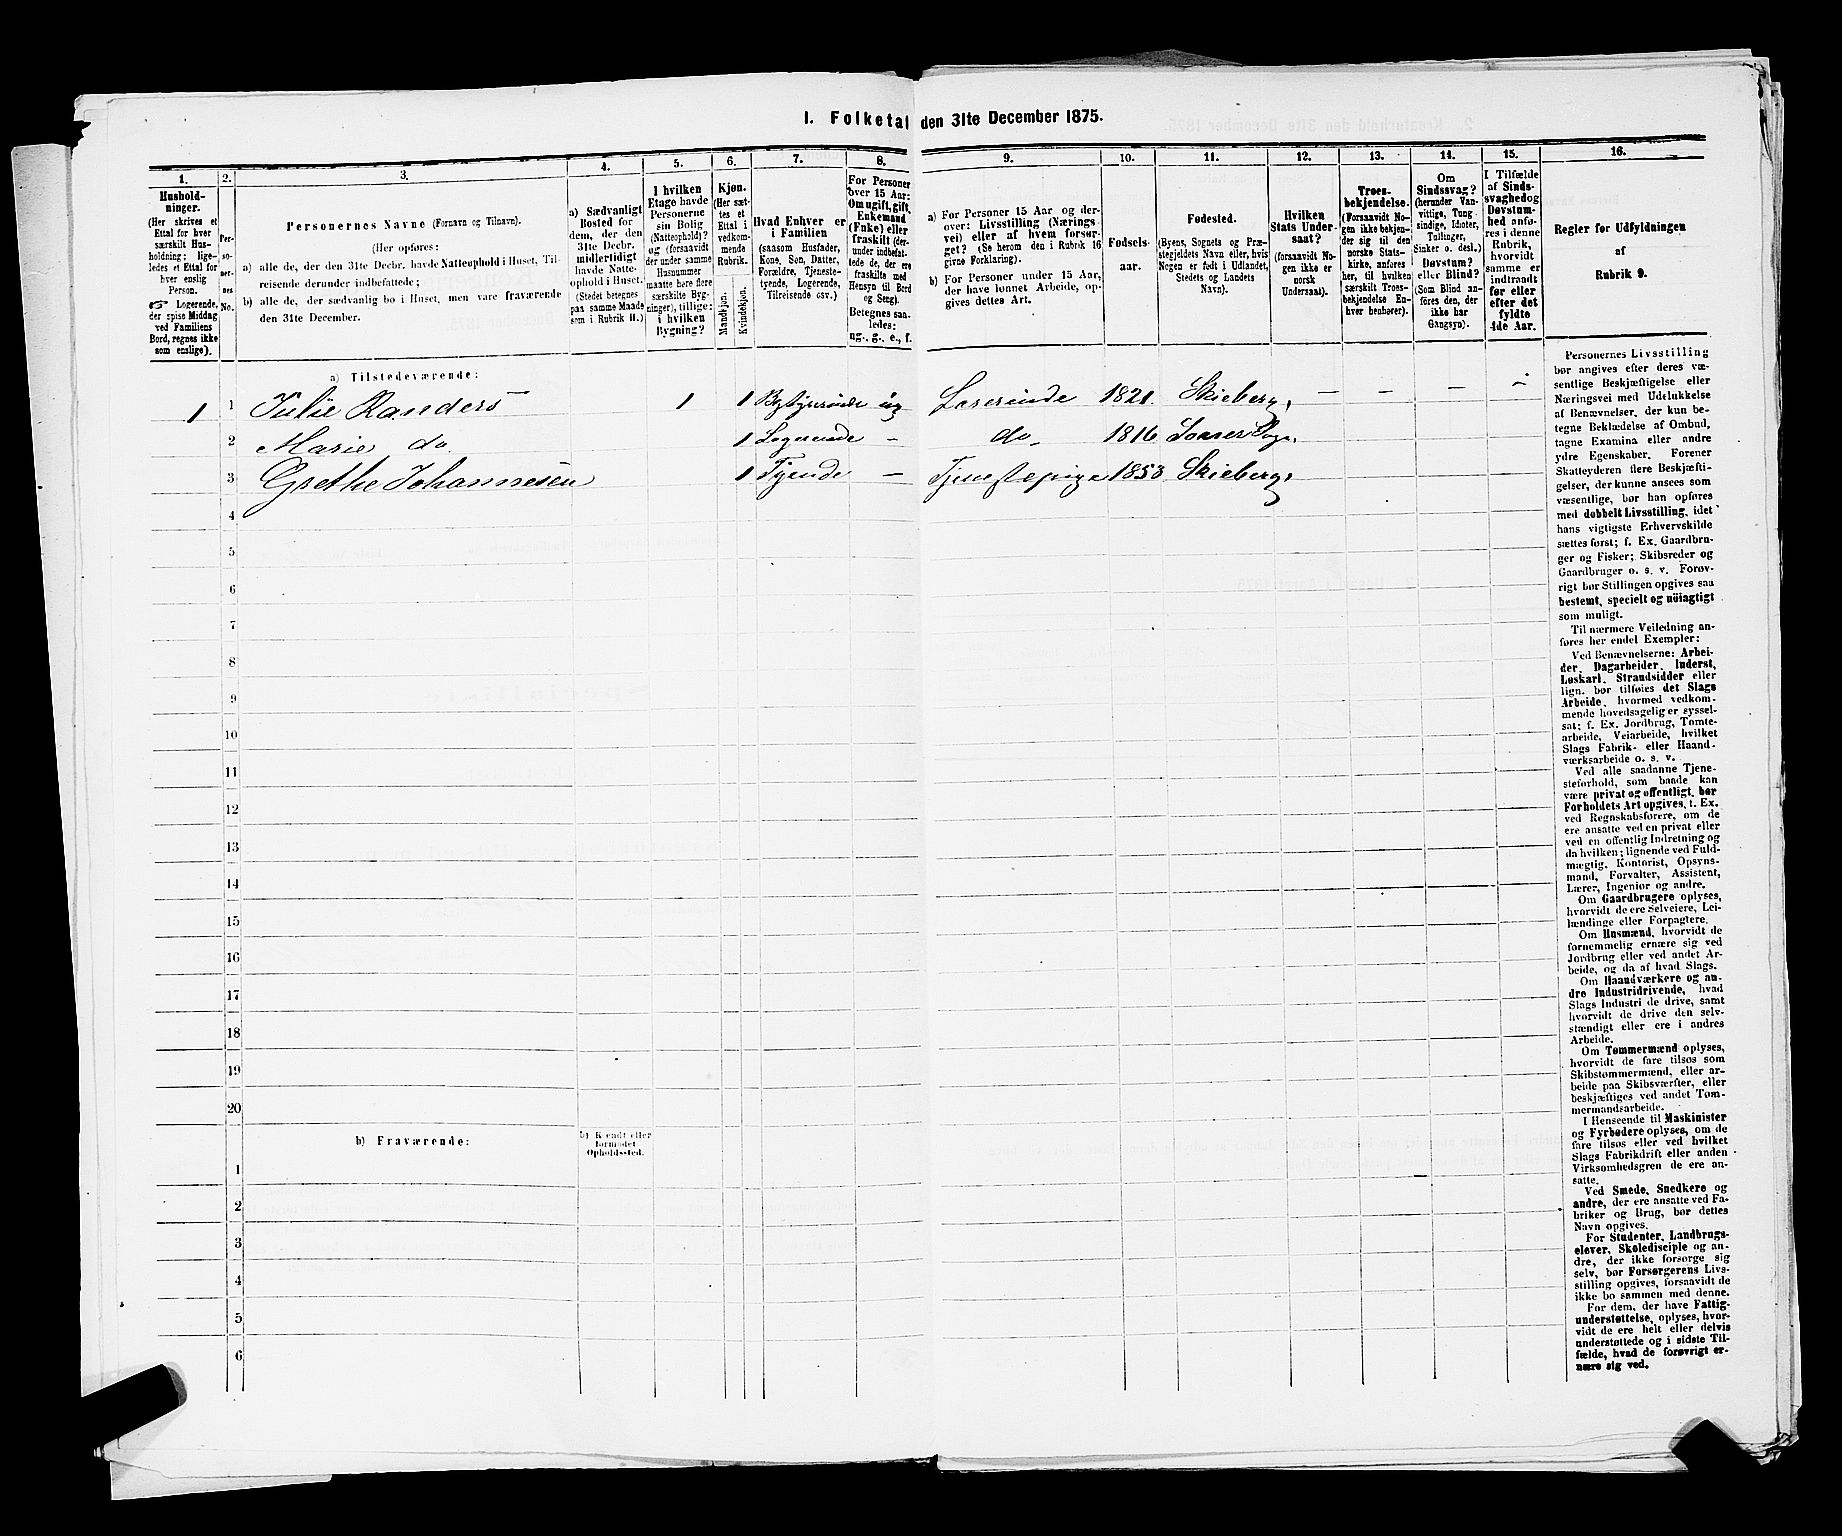 1. Folketal den 31te December 1875.
1. 2. 3. 4. 5. 6. 7. 8. 9. 10. 11. 12. 13. 14. 15. 16.
Hushold-
ninger.
(Her skrives et
Ettal for hver
særskilt Hus-
holdning: lige-
ledes et Ettal for
hver enslig
Person.
☞ Logerende,
der spise Middag
ved Familiens
Bord, regnes ikke
som enslige).
Per-
so-
ner-
nes
No.
Personernes Navne (Fornavn og Tilnavn).
(Her opføres:
a) alle de, der den 31te Decbr. havde Natteophold i Huset, Til-
reisende derunder indbefattede;
b) alle de, der sædvanlig bo i Huset, men vare fraværende
den 31te December.
a) Sædvanligt
Bosted for
dem, der den
31te Decbr.
midlertidigt
havde Natte-
ophold i Huset.
(Stedet betegnes
paa samme Maade
som i Rubrik 11.)
I hvilken
Etage havde
Personerne
sin Bolig
(Natteophold)?
og (forsaavidt
der under samme
Husnummer
maatte høre flere
særskilte Byg-
ninger), tillige:
i hvilken
Bygning?
Kjøn.
(Her sæt-
tes et
Ettal i
vedkom-
mende
Rubrik.
Mandkjøn.
Kvindekjøn.
Hvad Enhver er
i Familien
(saasom Husfader,
Kone, Søn, Datter,
Forældre, Tjeneste-
tyende, Logerende,
Tilreisende osv.)
For Personer
over 15 Aar:
Om ugift, gift,
Enkemand
(Enke) eller
fraskilt (der-
under indbefat-
tede de, der ere
fraskilte med
Hensyn til Bord
og Seng).
Betegnes saa-
ledes:
ug., g., e., f.
a) For Personer 15 Aar og der-
over: Livsstilling (Nærings-
vei) eller af hvem forsør-
get? (Se herom den i Rubrik 16
givne Forklaring).
b) For Personer under 15 Aar,
der have lønnet Arbeide, op-
gives dettes Art.
Fødsels-
aar.
Fødested.
(Byens, Sognets og Præ-
stegjeldets Navn eller, hvis
Nogen er født i Udlandet,
Stedets og Landets
Navn).
Hvilken
Stats Under-
saat?
(forsaavidt No-
gen ikke er
norsk
Undersaat).
Troes-
bekjendelse.
(Forsaavidt No-
gen ikke bekjen-
der sig til den
norske Stats-
kirke, anføres
her, til hvilken
særskilt Troes-
bekjendelse En-
hver henhører).
Om
Sindssvag?
(herunder Van-
vittige, Tung-
sindige, Idioter,
Tullinger,
Sinker o. desl.)
Døvstum?
eller Blind?
(Som Blind an-
føres den, der
ikke har
Gangsyn).
I Tilfælde
af Sinds-
svaghed og
Døvstum-
hed anfø-
res i denne
Rubrik,
hvorvidt
samme er
indtraadt
før eller
efter det
fyldte
4de Aar.
Regler for Udfyldningen
af
Rubrik 9.
a) Tilstedeværende:
1 1 Julie Randers 1 1 Bestyrerinde ug Lærerinde 1821. Skieberg, — — — —
2 Marie do. 1 Logerende - do. 1816
3 Grethe Johannesen 1 Tyende — Tjenestepige 1853 Skieberg,
4
5
6
7
8
9
10
11
12
13
14
15
16
17
18
19
20
b) Fraværende:
b) Kjendt eller
formodet
Opholdssted.
1
2
3
4
5
6
Personernes Livsstilling
bør angives efter deres væ-
sentlige Beskjæftigelse eller
Næringsvei med Udelukkelse
af Benævnelser, der kun be-
tegne Beklædelse af Ombud,
tagne Examina eller andre
ydre Egenskaber. Forener
Skatteyderen flere Beskjæfti-
gelser, der kunne ansees som
væsentlige, bør han opføres
med dobbelt Livsstilling, idet
hans vigtigste Erhvervskilde
sættes først; f. Ex. Gaardbru-
ger og Fisker; Skibsreder og
Gaardbruger o. s. v. Forøv-
rigt bør Stillingen opgives saa
bestemt, specielt og nöiagtigt
som muligt.
Til nærmere Veiledning an-
føres her endel Exempler:
Ved Benævnelserne: Arbei-
der, Dagarbeider, Inderst,
Løskarl, Strandsidder eller
lign. bør tilføies det Slags
Arbeide, hvormed vedkom-
mende hovedsagelig er syssel-
sat; f. Ex. Jordbrug, Tømte-
arbeide, Veiarbeide, hvilket
Slags Fabrik- eller Haand-
værksarbeide o. s. v.
Ved alle saadanne Tjene-
steforhold, som baade kan
være privat og offentligt, bør
Forholdets Art opgives, f. Ex.
ved Regnskabsførere, om de
ere ansatte ved en privat eller
ved en offentlig Indretning og
da hvilken; lignende ved Fuld-
mægtig, Kontorist, Opsyns-
mand, Forvalter, Assistent,
Lærer, Ingeniør og andre.
Om Gaardbrugere oplyses,
hvorvidt de ere Selveiere, Lei-
lændinge eller Forpagtere.
Om Husmænd, hvorvidt de
fornemmelig ernære sig ved
Jordbrug eller ved andet Ar-
beide, og da af hvad Slags.
Om Haandværkere og an-
dre Industridrivende, hvad
Slags Industri de drive, samt
hvorvidt de drive den selv-
stændigt eller ere i andres
Arbeide.
Om Tømmermænd oplyses,
hvorvidt de fare tilsøs som
Skibstømmermænd, eller ar-
beide paa Skibsværfter, eller
beskjæftiges ved andet Tøm-
mermandsarbeide.
I Henseende til Maskinister
og Fyrbødere oplyses, om de
fare tilsøs eller ved hvilket
Slags Fabrikdrift eller anden
Virksomhedsgren de ere an-
satte.
Ved Smede, Snedkere og
andre, der ere ansatte ved Fa-
briker og Brug, bør dettes
Navn opgives.
For Studenter, Landbrugs-
elever, Skoledisciple og an-
dre, der ikke forsørge sig
selv, bør Forsørgerens Livs-
stilling opgives, forsaavidt de
ikke bo sammen med denne.
For dem, der have Fattig-
understøttelse, oplyses, hvor-
vidt de ere helt eller delvis
understøttede og i sidste Til-
fælde, hvad de forøvrigt er-
nære sig ved.